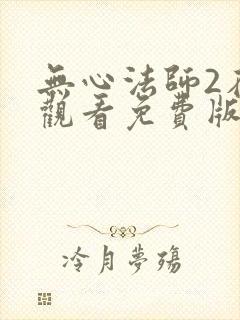 無心法師2
觀看免費版
冷月夢殤